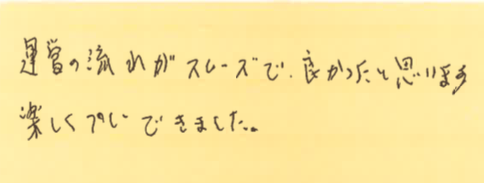 運営の流れがスムーズで、良かったと思います
楽しくプレイできました。